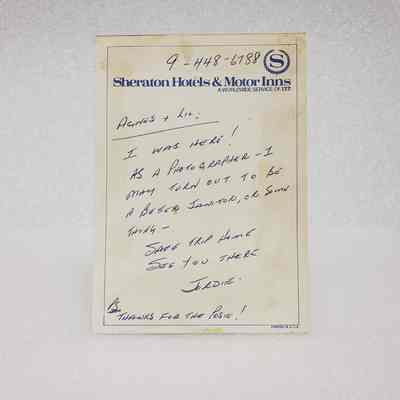 9-448-6788
S
Sheraton Hotels & Motor Inns
A WORLDWIDE SERVICE OF ITT
AGNES + LIL:
I WAS HERE!
AS A PHOTOGRAPHER - I
MAY TURN OUT TO BE
A BETER JANITOR, OR SOME
THING -
SAFE TRIP HOME
SEE YOU THERE
JORDIE.
PS
THANKS FOR THE POSIE!
PRINTED IN U.S.A.